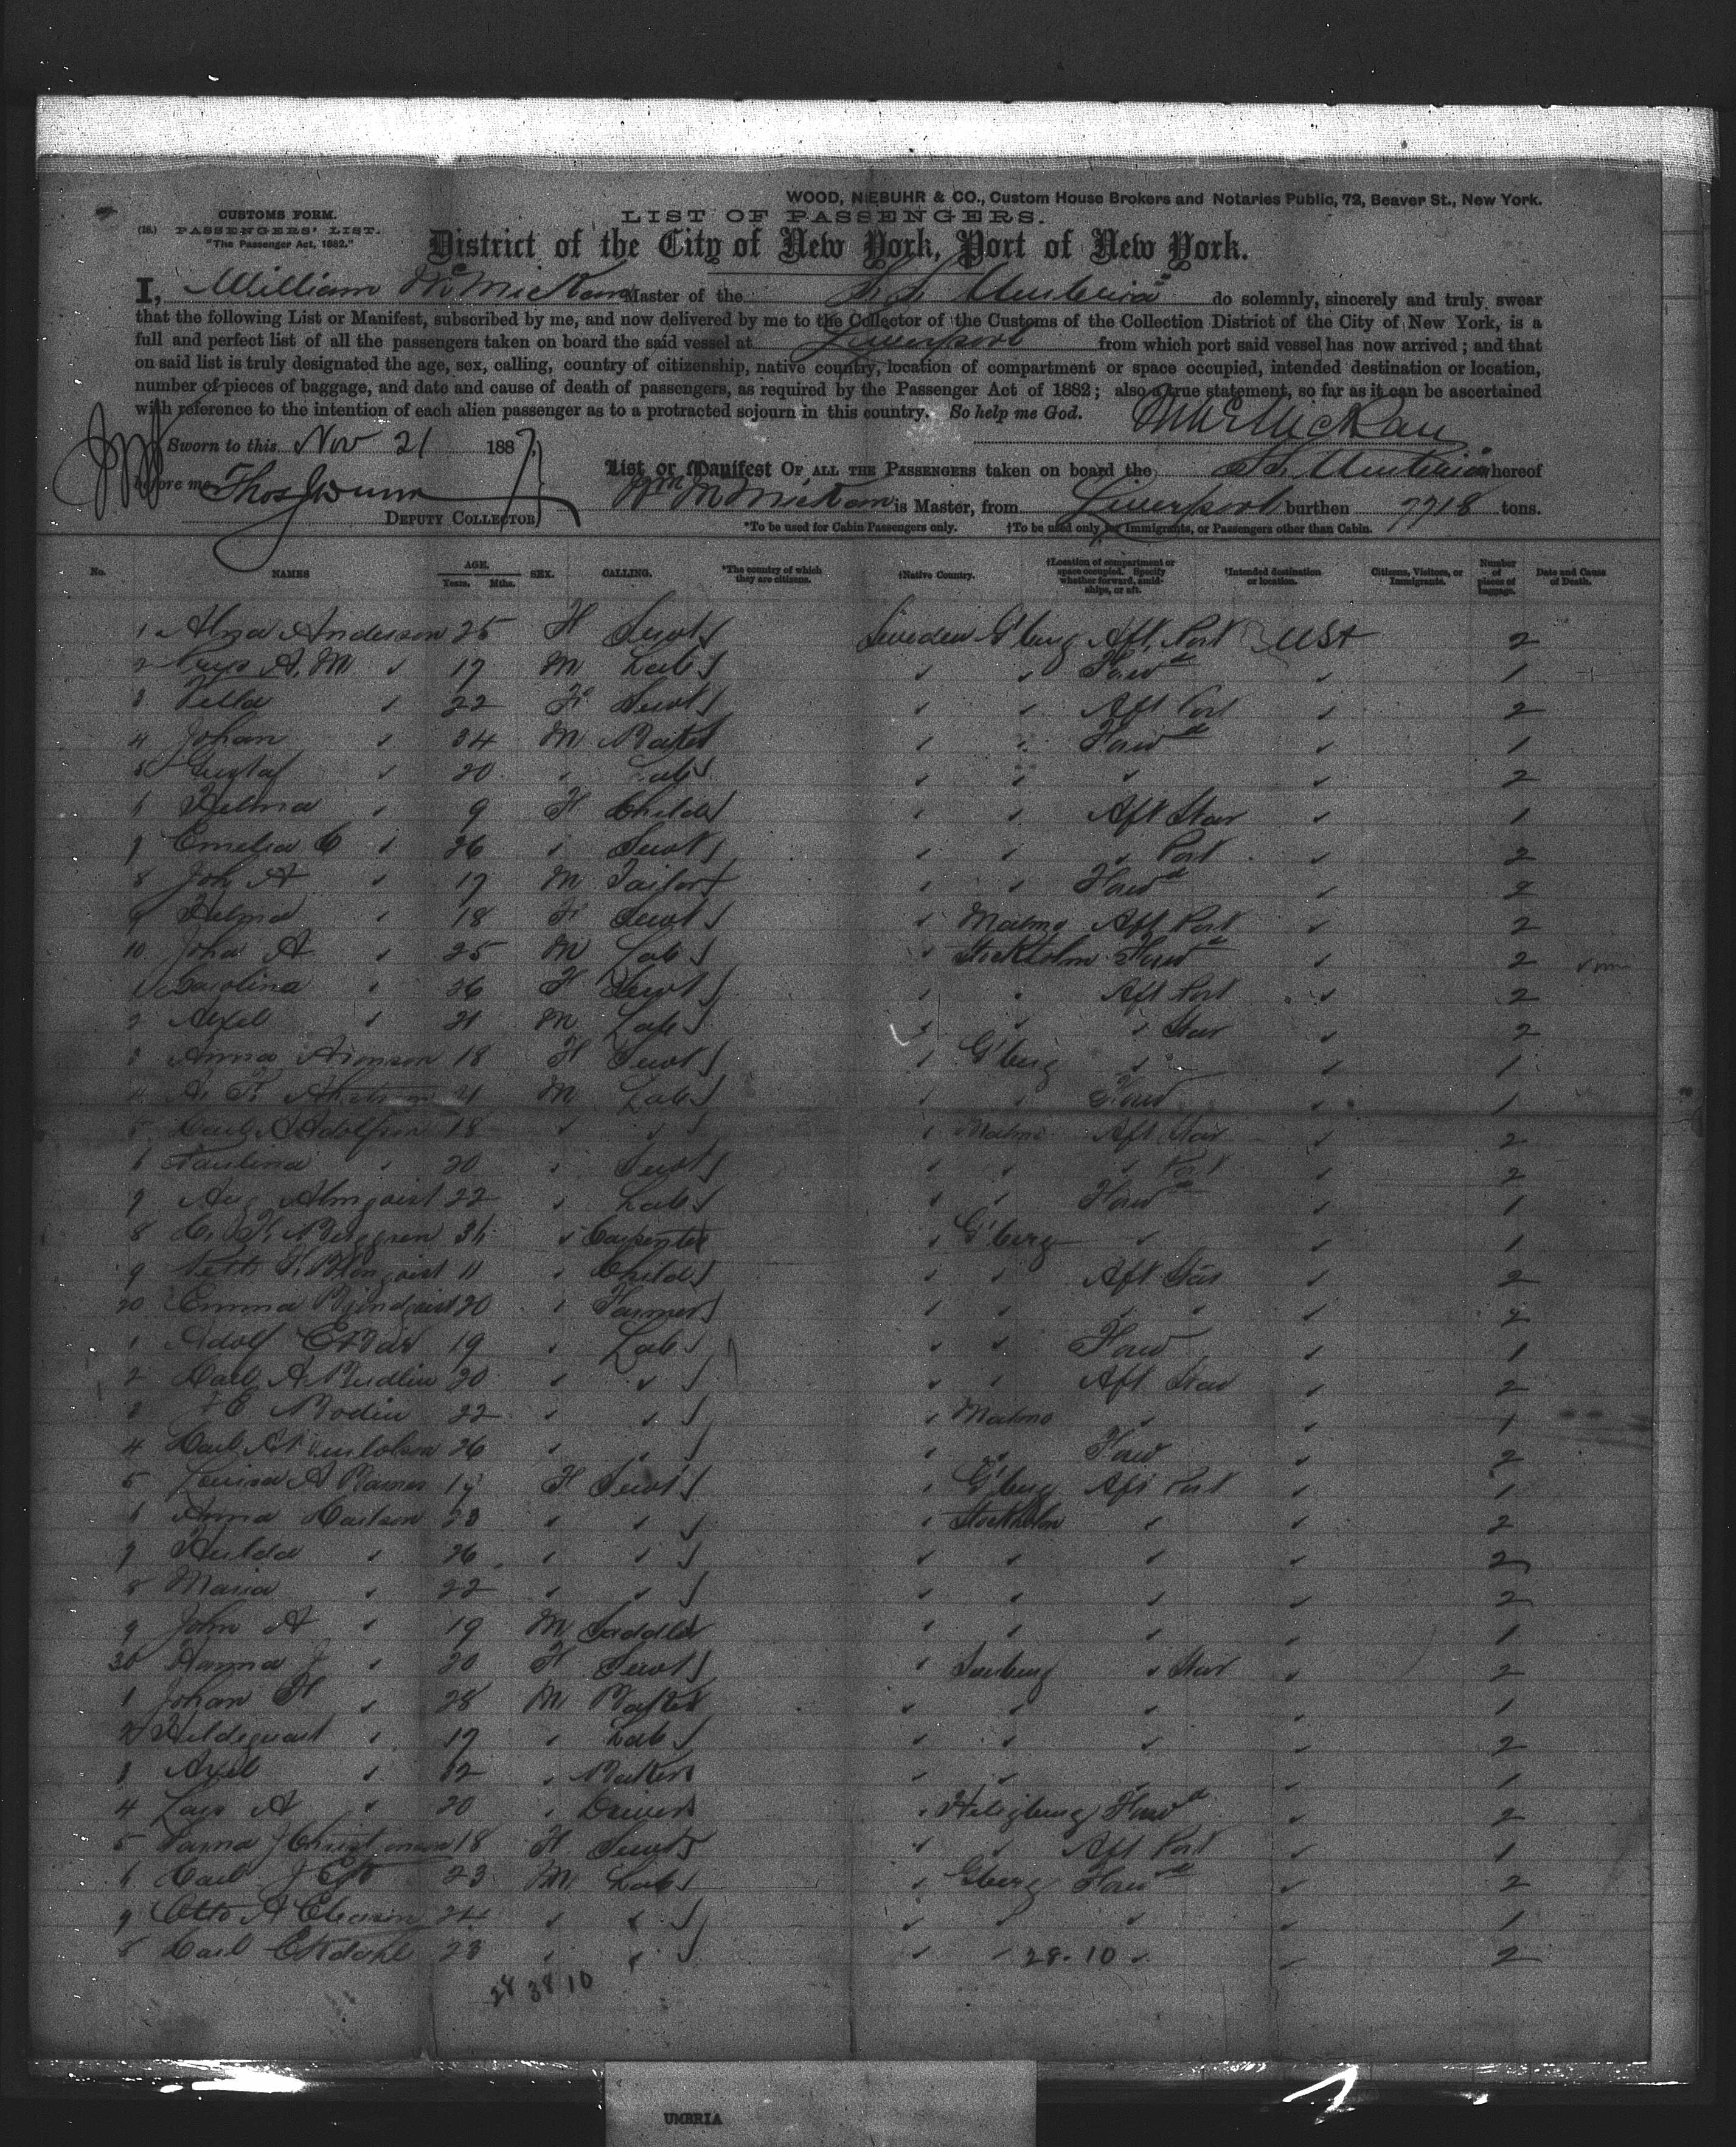 WOOD, NIEBUHR & CO., Custom House Brokers and Notaries Public, 72, Beaver St., New York.
CUSTOMS FORM.
LIST OF PASSENGERS.
(18.) PASSENGERS' LIST.
"The Passenger Act, 1882."
District of the City of New York, Port of New York.
I, William McMickan Master of the S.S. Umbria do solemnly, sincerely and truly swear
that the following List or Manifest, subscribed by me, and now delivered by me to the Collector of the Customs of the Collection District of the City of New York, is a
full and perfect list of all the passengers taken on board the said vessel at Liverpool from which port said vessel has now arrived; and that
on said list is truly designated the age, sex, calling, country of citizenship, native country, location of compartment or space occupied, intended destination or location,
number of pieces of baggage, and date and cause of death of passengers, as required by the Passenger Act of 1882; also a true statement, so far as it can be ascertained
with reference to the intention of each alien passenger as to a protracted sojourn in this country. So help me God.
Sworn to this Nov 21 1887,
before me Thos J Dunn
DEPUTY COLLECTOR
List or Manifest OF ALL THE PASSENGERS taken on board the S.S. Umbria whereof
Wm McMickan is Master, from Liverpool burthen 7718 tons.
*To be used for Cabin Passengers only. †To be used only for Immigrants, or Passengers other than Cabin.
No. NAMES AGE. Years. Mths. SEX. CALLING. *The country of which they are citizens. †Native Country. †Location of compartment or space occupied. Specify whether forward, amidships, or aft. †Intended destination or location. Citizens, Visitors, or Immigrants. Number of pieces of baggage. Date and Cause of Death.
1 Anderson 25 F Servt Sweden G'burg Aft Port USA 2
2 A. M 17 M Lab Forwd 1
3 22 F Servt Aft Port 2
4 Johan 34 M Baker Forwd 1
5 Gustaf 20 Lab 2
6 Helma 9 F Child Aft Star 1
7 Emelia C 26 Servt Port 2
8 Joh A 17 M Tailor Forwd 2
9 Helma 18 F Servt Malmo Aft Port 2
10 Joha A 25 M Lab Stockholm Forwd 2
1 Carolina 26 F Servt Aft Port 2
2 Axel 21 M Lab Star 2
3 Anna Aronson 18 F Servt G'berg 1
4 A. F. 21 M Lab Forwd 1
5 Carl A Adolfson 18 Malmo Aft Star 2
6 Paulina 20 Servt Port 2
7 Aug Almqvist 22 Lab Forwd 1
8 C. F. Berggren 31 Carpenter G'berg 1
9 11 Child Aft Star 2
20 Emma 20 Farmer 2
1 Adolf 19 Lab Forwd 1
2 Carl A 20 Aft Star 2
3 Bodin 22 Malmo 1
4 Carl A 26 Forwd 2
5 Louisa A F Servt G'berg Aft Port 1
6 Anna Carlson 23 Stockholm 2
7 Hulda 26 2
8 Maria 22 2
9 John A 19 M Saddler 1
30 Hanna J 20 F Servt Star 2
1 Johan 28 M Baker 1
2 17 Lab 2
3 Axel Baker 1
4 Lars A 20 Driver Forwd 2
5 18 F Servt Aft Port 1
6 Carl J 23 M Lab G'berg Forwd 2
7 Otto A 24 1
8 Carl Ekdahl 23 28.10 2
28 38 10
UMBRIA